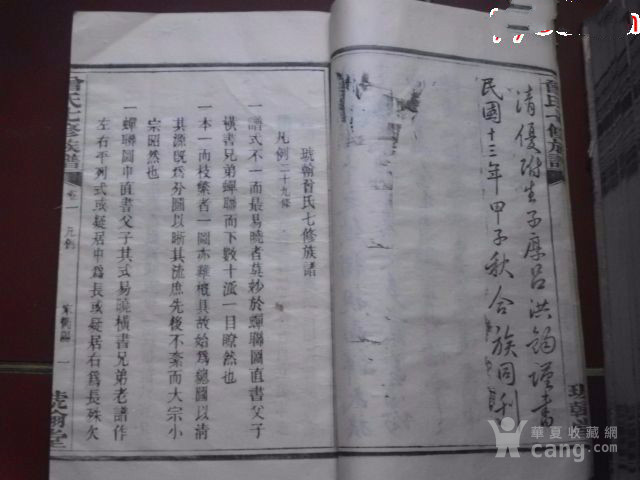 曾氏七修族譜
清優附生子厚呂洪鈞謹書
民國十三年甲子秋合族同刊
曾氏七修族譜
凡例二十九條
一譜式不一而最易曉者莫妙於蟬聯圖直書父子
橫書兄弟蟬聯而下數十派一目瞭然也
一本一而枝繁者一圖亦難概具故始為總圖以清
其源旣為分圖以晰其流庶先後不紊而大宗小
宗昭然也
一蟬聯圖中直書父子其式易曉橫書兄弟老譜作
左右平列式或疑居中為長或疑居右為長殊欠
曾氏七修族譜
凡例
一
華夏收藏網
cang.com